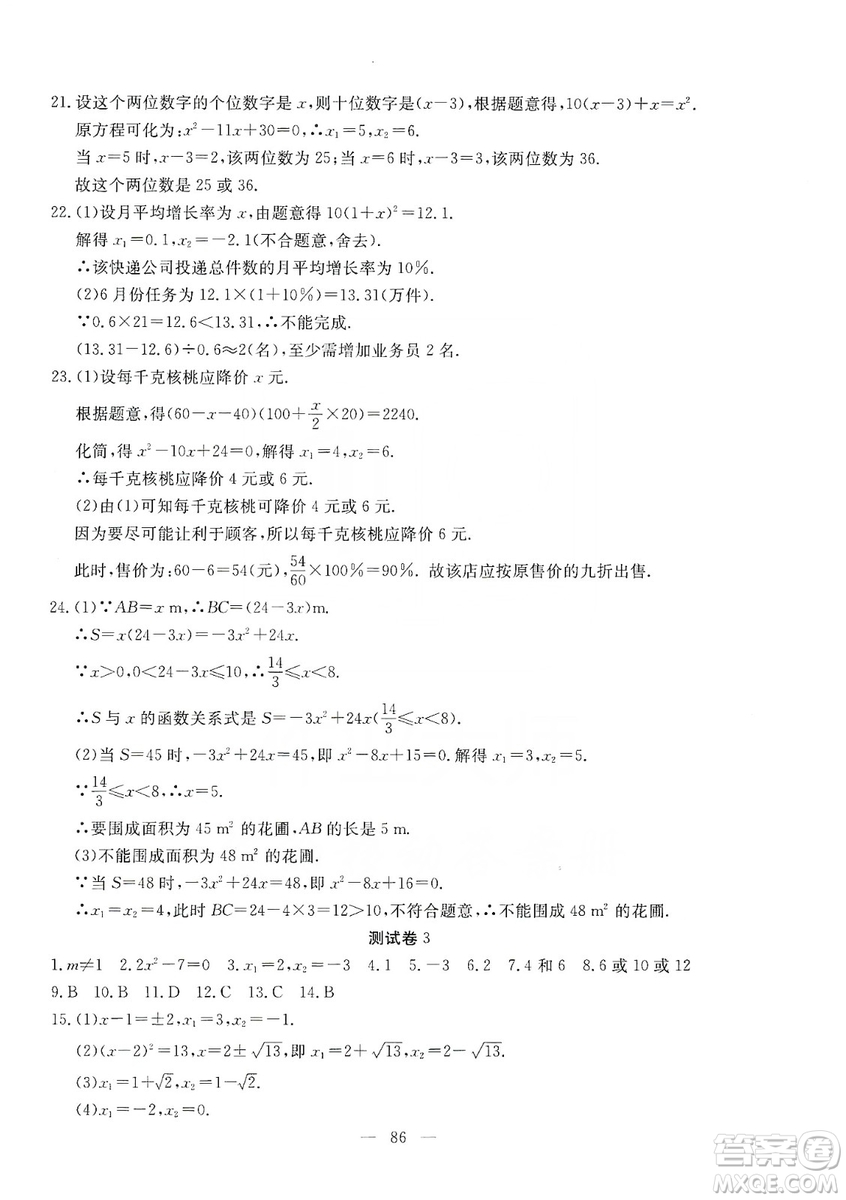 21. 设这个两位数字的个位数字是 x,则十位数字是(x−3),根据题意,得 10(x−3)+x=x².
原方程可化为:x²−11x+30=0,∴x₁=5,x₂=6.
当 x=5 时,x−3=2,该两位数为 25;当 x=6 时,x−3=3,该两位数为 36.
故这个两位数是 25 或 36.
22. (1)设月平均增长率为 x,由题意得 10(1+x)²=12.1.
解得 x₁=0.1,x₂=−2.1(不合题意,舍去).
∴该快递公司投递总件数的月平均增长率为 10%.
(2)6 月份任务为 12.1×(1+10%)=13.31(万件).
∵0.6×21=12.6<13.31,∴不能完成.
(13.31−12.6)÷0.6≈2(名),至少需增加业务员 2 名.
23. (1)设每千克核桃应降价 x 元.
根据题意,得(60−x−40)(100+x/2×20)=2240.
化简,得 x²−10x+24=0,解得 x₁=4,x₂=6.
∴每千克核桃应降价 4 元或 6 元.
(2)由(1)可知每千克核桃可降价 4 元或 6 元.
因为要尽可能让利于顾客,所以每千克核桃应降价 6 元.
此时,售价为:60−6=54(元),54/60×100%=90%. 故该店应按原售价的九折出售.
24. (1)∵AB=x m,∴BC=(24−3x)m.
∴S=x(24−3x)=−3x²+24x.
∵x>0,0<24−3x⩽10,∴14/3⩽x<8.
∴S 与 x 的函数关系式是 S=−3x²+24x(14/3⩽x<8).
(2)当 S=45 时,−3x²+24x=45,即 x²−8x+15=0. 解得 x₁=3,x₂=5.
∵14/3⩽x<8,∴x=5.
∴要围成面积为 45 m² 的花圃,AB 的长是 5 m.
(3)不能围成面积为 48 m² 的花圃.
∵当 S=48 时,−3x²+24x=48,即 x²−8x+16=0.
∴x₁=x₂=4,此时 BC=24−4×3=12>10,不符合题意,∴不能围成 48 m² 的花圃.
测试卷 3
1. m≠1 2. 2x²−7=0 3. x₁=2,x₂=−3 4. 1 5. −1 6. 2 7. 4 和 6 8. 6 或 10 或 12
9. B 10. B 11. D 12. C 13. C 14. B
15. (1)x−1=±2,x₁=3,x₂=−1.
(2)(x−2)²=13,x=2±√13,即 x₁=2+√13,x₂=2−√13.
(3)x₁=1+√2,x₂=1−√2.
(4)x₁=−2,x₂=0.
— 86 —
答案圈
MXQE.COM